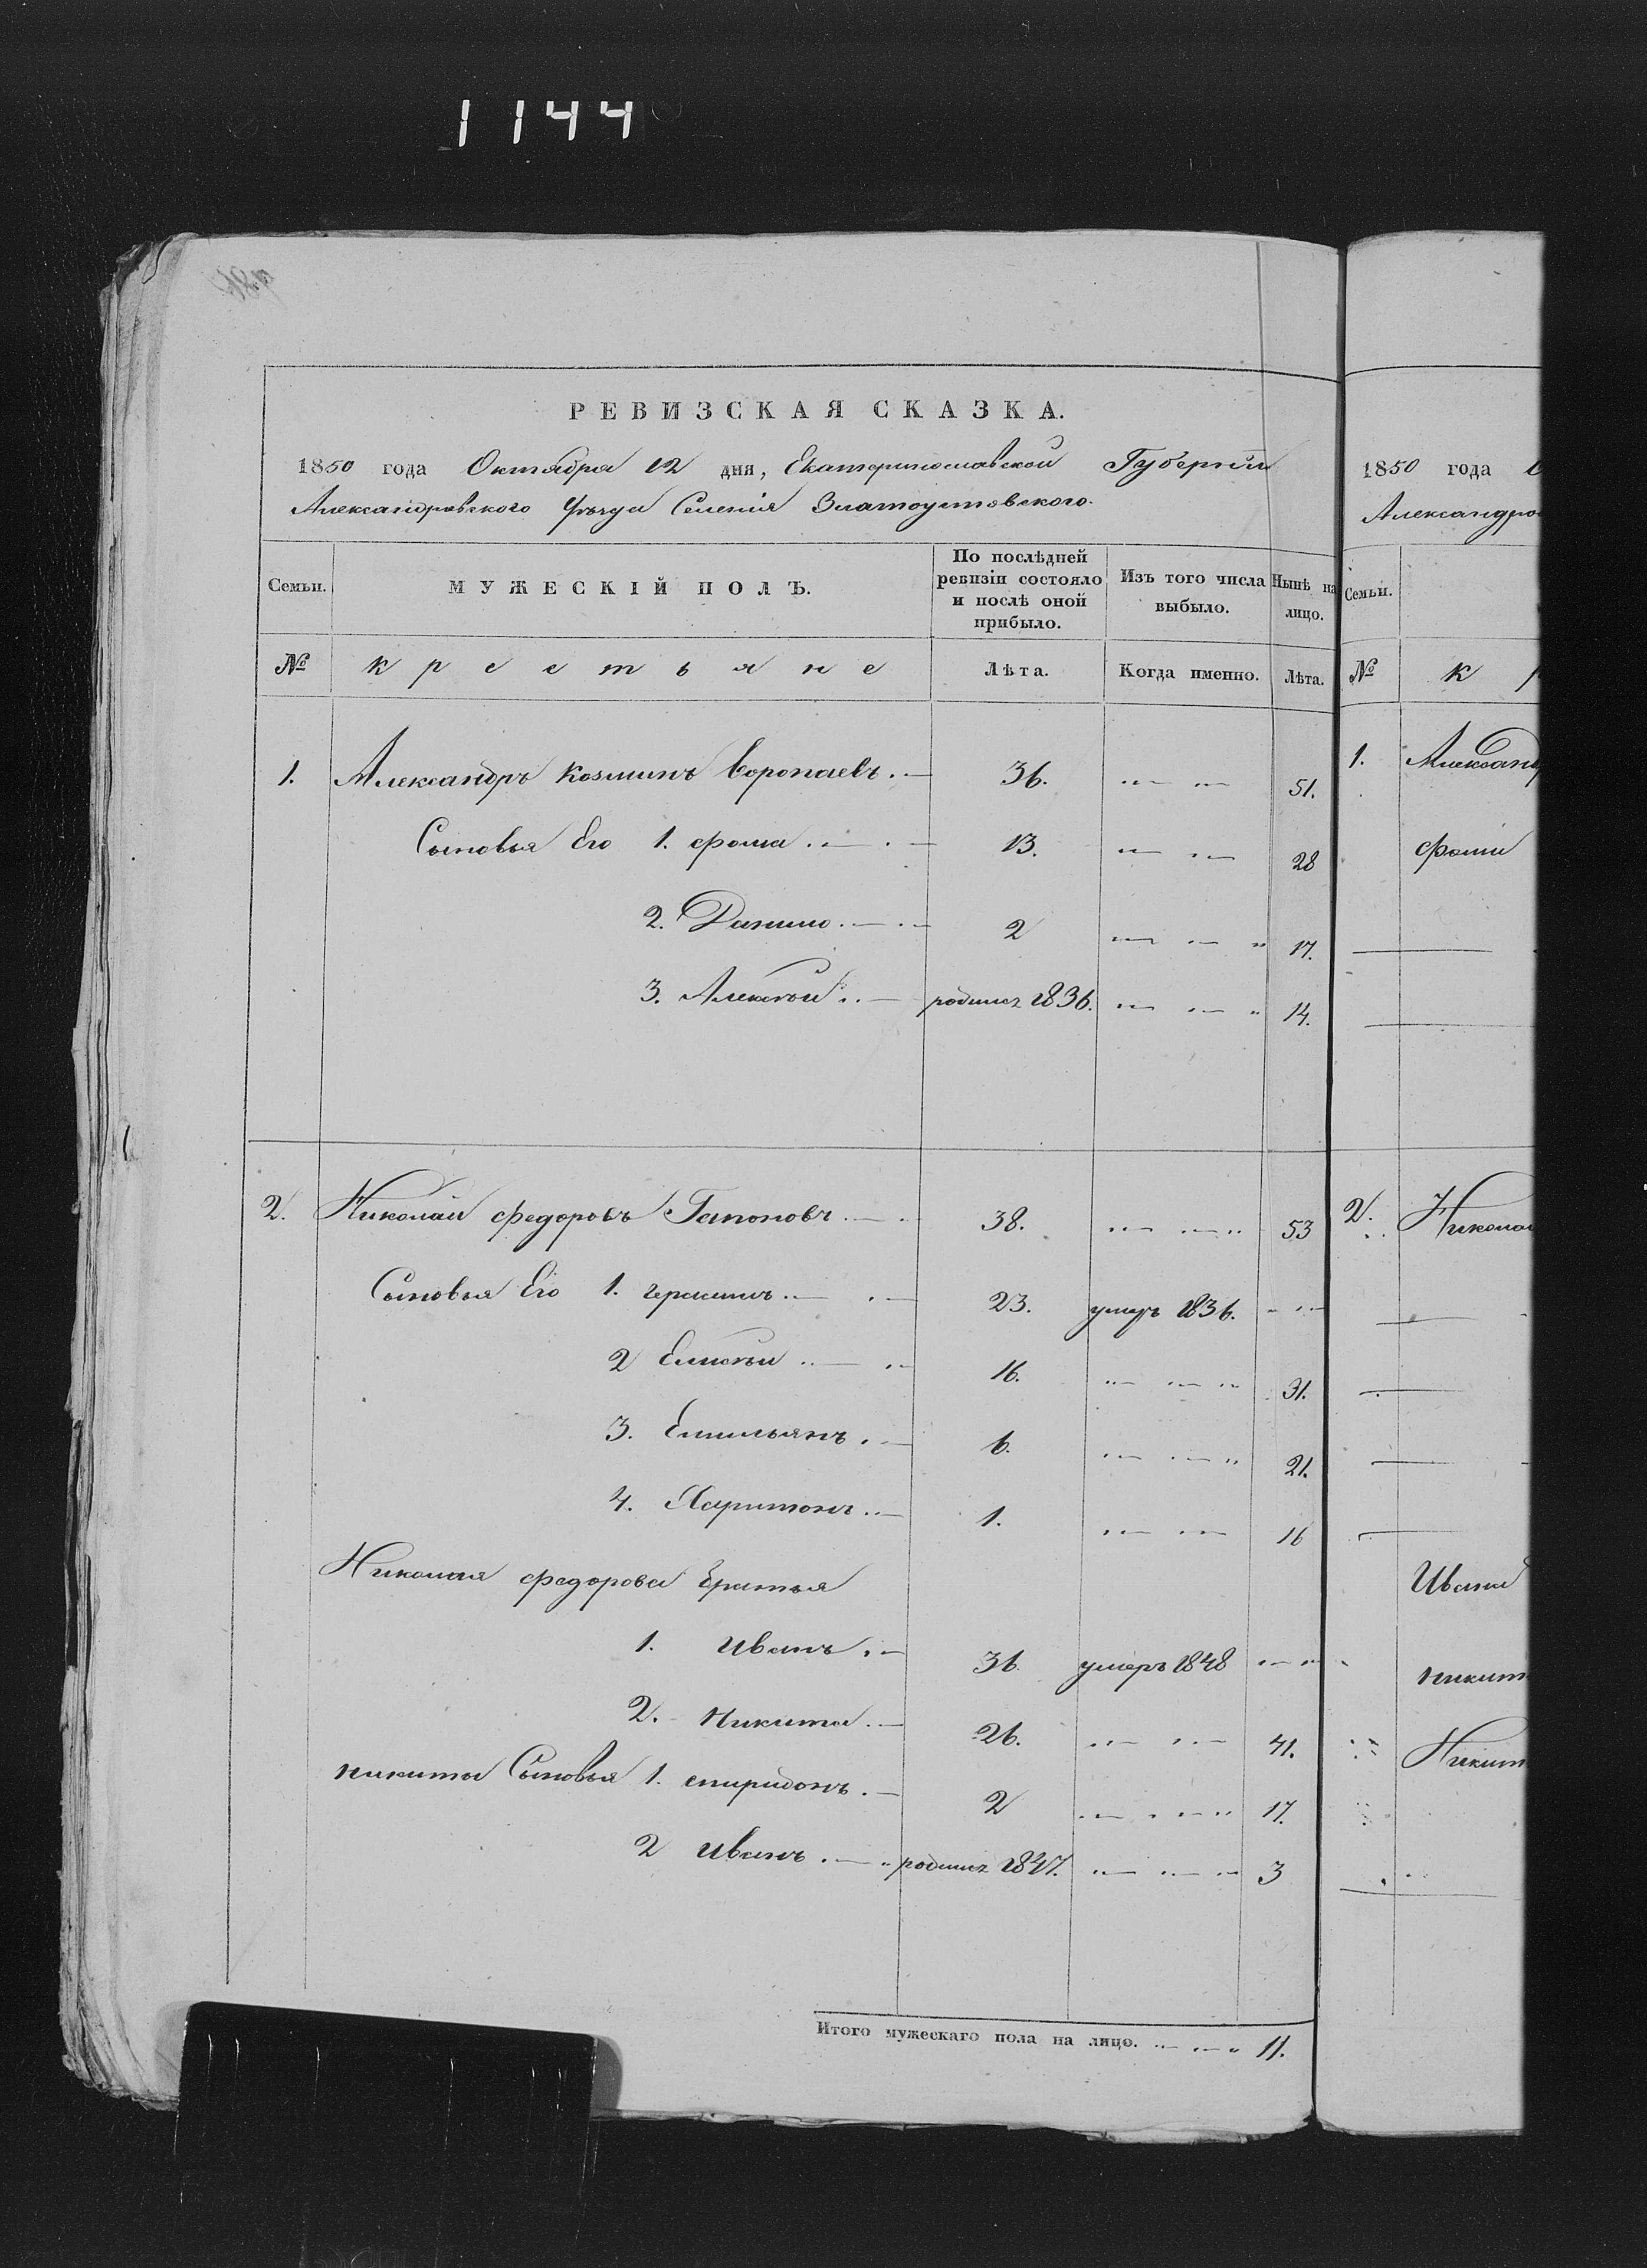 1144
РЕВИЗСКАЯ СКАЗКА.
1850 года Октября 12 дня, Екатеринославской Губерніи
Александровского Уѣзда Селенія Златоустовского.
Семьи. МУЖЕСКІЙ ПОЛЪ. По послѣдней ревизіи состояло и послѣ оной прибыло. Изъ того числа выбыло. Нынѣ на лицо.
№ крестьяне Лѣта. Когда именно. Лѣта.
1. Александръ Козминъ Воропаевъ 36. 51.
Сыновья Его 1. Фома 13. 28
2. Данило 2 17.
3. Алексѣй родился 1836. 14.
2. Николай Федоровъ Гапоновъ 38. 53
Сыновья Его 1. Герасимъ 23. умеръ 1836.
2 Елисѣй 16. 31.
3. Емильянъ 6. 21.
4. Харитонъ 1. 16
Николая Федорова братья
1. Иванъ 36 умеръ 1848
2. Никита 26. 41.
никиты Сыновья 1. спиридонъ 2 17.
2 Иванъ родился 1847. 3
Итого мужескаго пола на лицо. 11.
1850 года
Александро
Семьи.
№ к р
1. Александ
Фомы
2. Никола
Ивана
никит
Никит